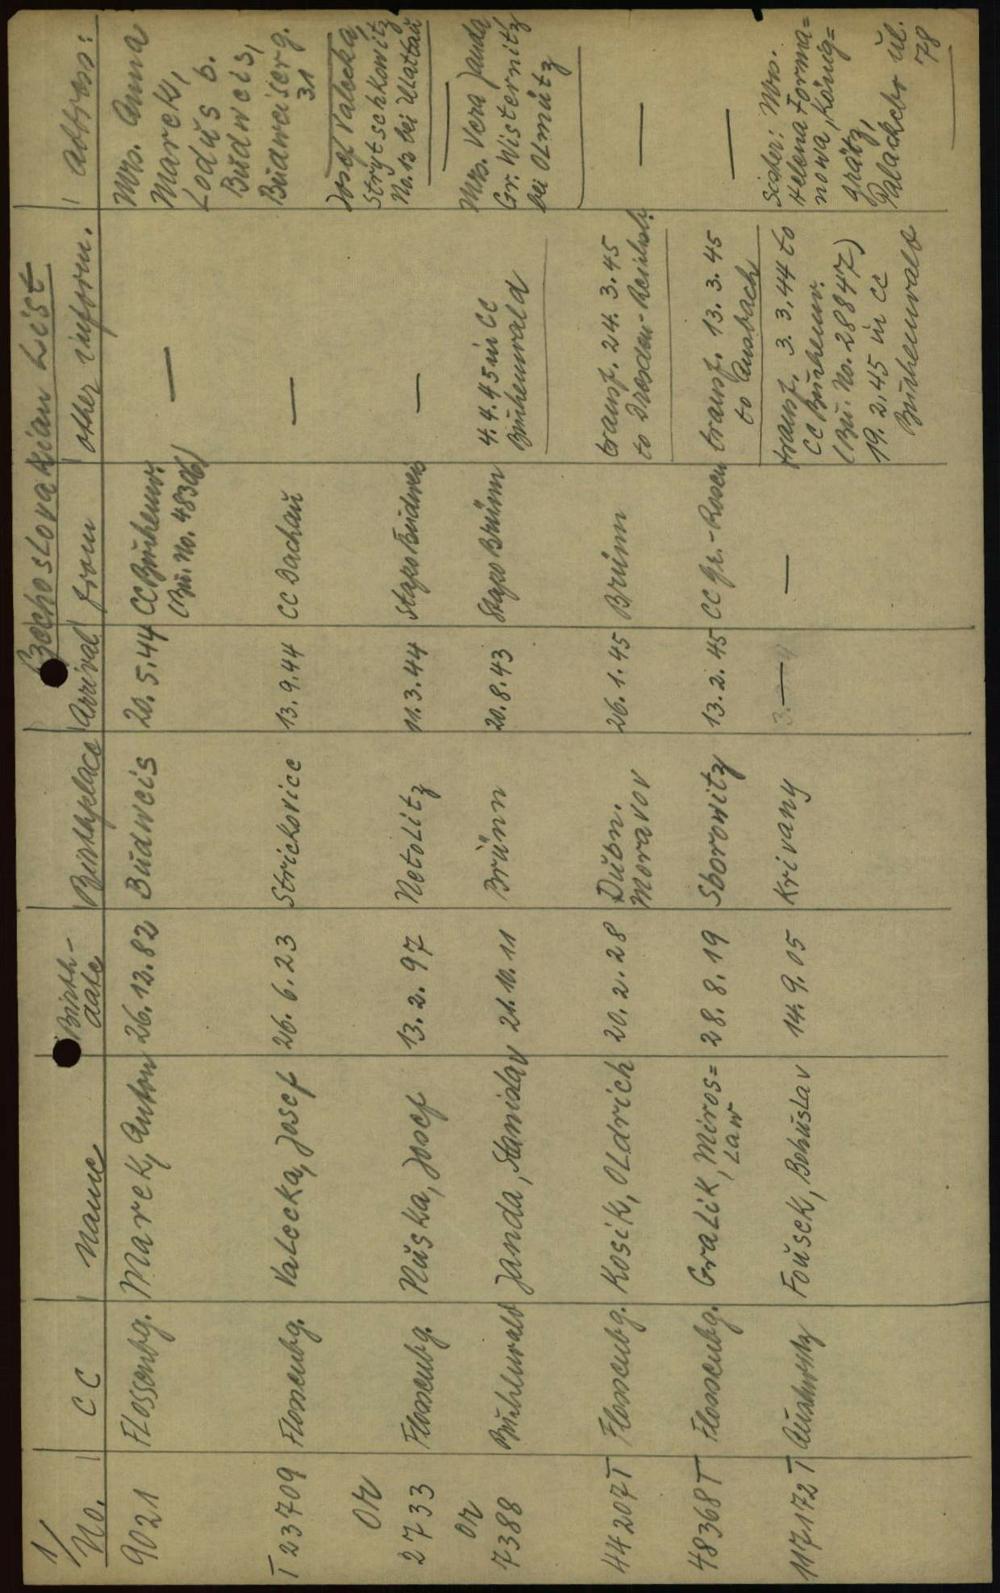 1/
Zechoslovakian List
No. CC Name Birth-
date Birthplace Arrival from other inform. Address:
9021 Flossenbg. Marek, Anton 26.12.82 Büdweis 20.5.44 CC Büchenw.
(Bü. No. 48306) — Mrs. Anna
Marek,
Lodüs 6.
Büdweis,
Büdweiserg.
31
T 23709 Flossenbg. Valecka, Josef 26.6.23 Strickovice 13.9.44 CC Dachaü — Josef Valecka,
Strytschkowitz
No. 12 bei Wlattaü
OR
2733 Flossenbg. Plüska, Josef 13.2.97 Netolitz 11.3.44 Stapo Büdweis — —
OR
7388 Büchenwald Janda, Stanislav 21.10.11 Brünn 20.8.43 Stapo Brünn 4.4.45 in CC
Büchenwald Mrs. Vera Janda
Gr. Wisternitz
bei Olmütz
44207 T Flossenbg. Kosik, Oldrich 20.2.28 Dübn.
Moravov 26.1.45 Brünn transf. 24.3.45
to Dresden-Reichsb. —
48368 T Flossenbg. Gralik, Miros=
law 28.8.19 Sborowitz 13.2.45 CC Gr.-Rosen transf. 13.3.45
to Ansbach —
117172 T Aüschwitz Foüsek, Bohüslav 14.9.05 Krivany — — transf. 3.3.44 to
CC Büchenw.
(Bü. No. 28847)
19.2.45 in CC
Büchenwald Sister: Mrs.
Helena Forma=
nowa, König=
grätz,
Palackeho ül.
78